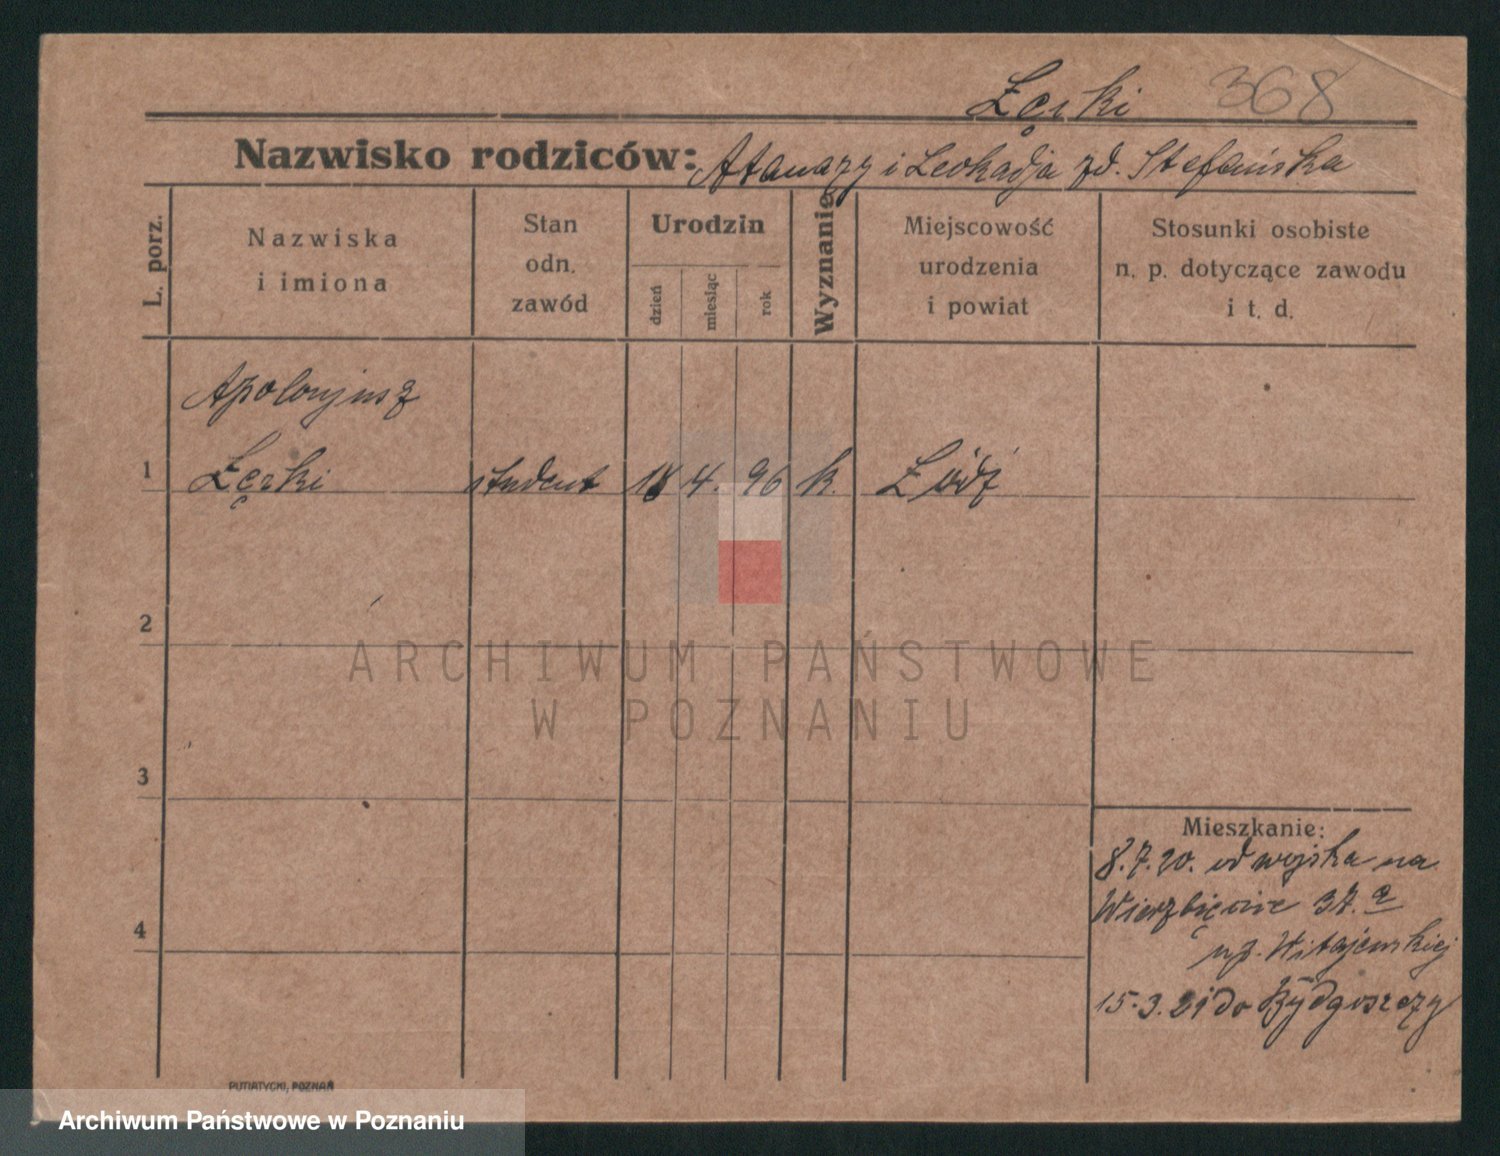 Łęski 368
Nazwisko rodziców: Atanazy i Leokadja zd. Stefańska
L. porz.
Nazwiska
i imiona
Stan
odn.
zawód
Urodzin
dzień
miesiąc
rok
Wyznanie
Miejscowość
urodzenia
i powiat
Stosunki osobiste
n. p. dotyczące zawodu
i t. d.
Apolonjusz
1 Łęski student 18 4. 96 k. Łódź
2
ARCHIWUM PAŃSTWOWE
W POZNANIU
3
4
Mieszkanie:
8.7.20. od wojska na
Wierzbięcice 37.
15.3.21 do Bydgoszczy
PUTIATYCKI, POZNAŃ
Archiwum Państwowe w Poznaniu